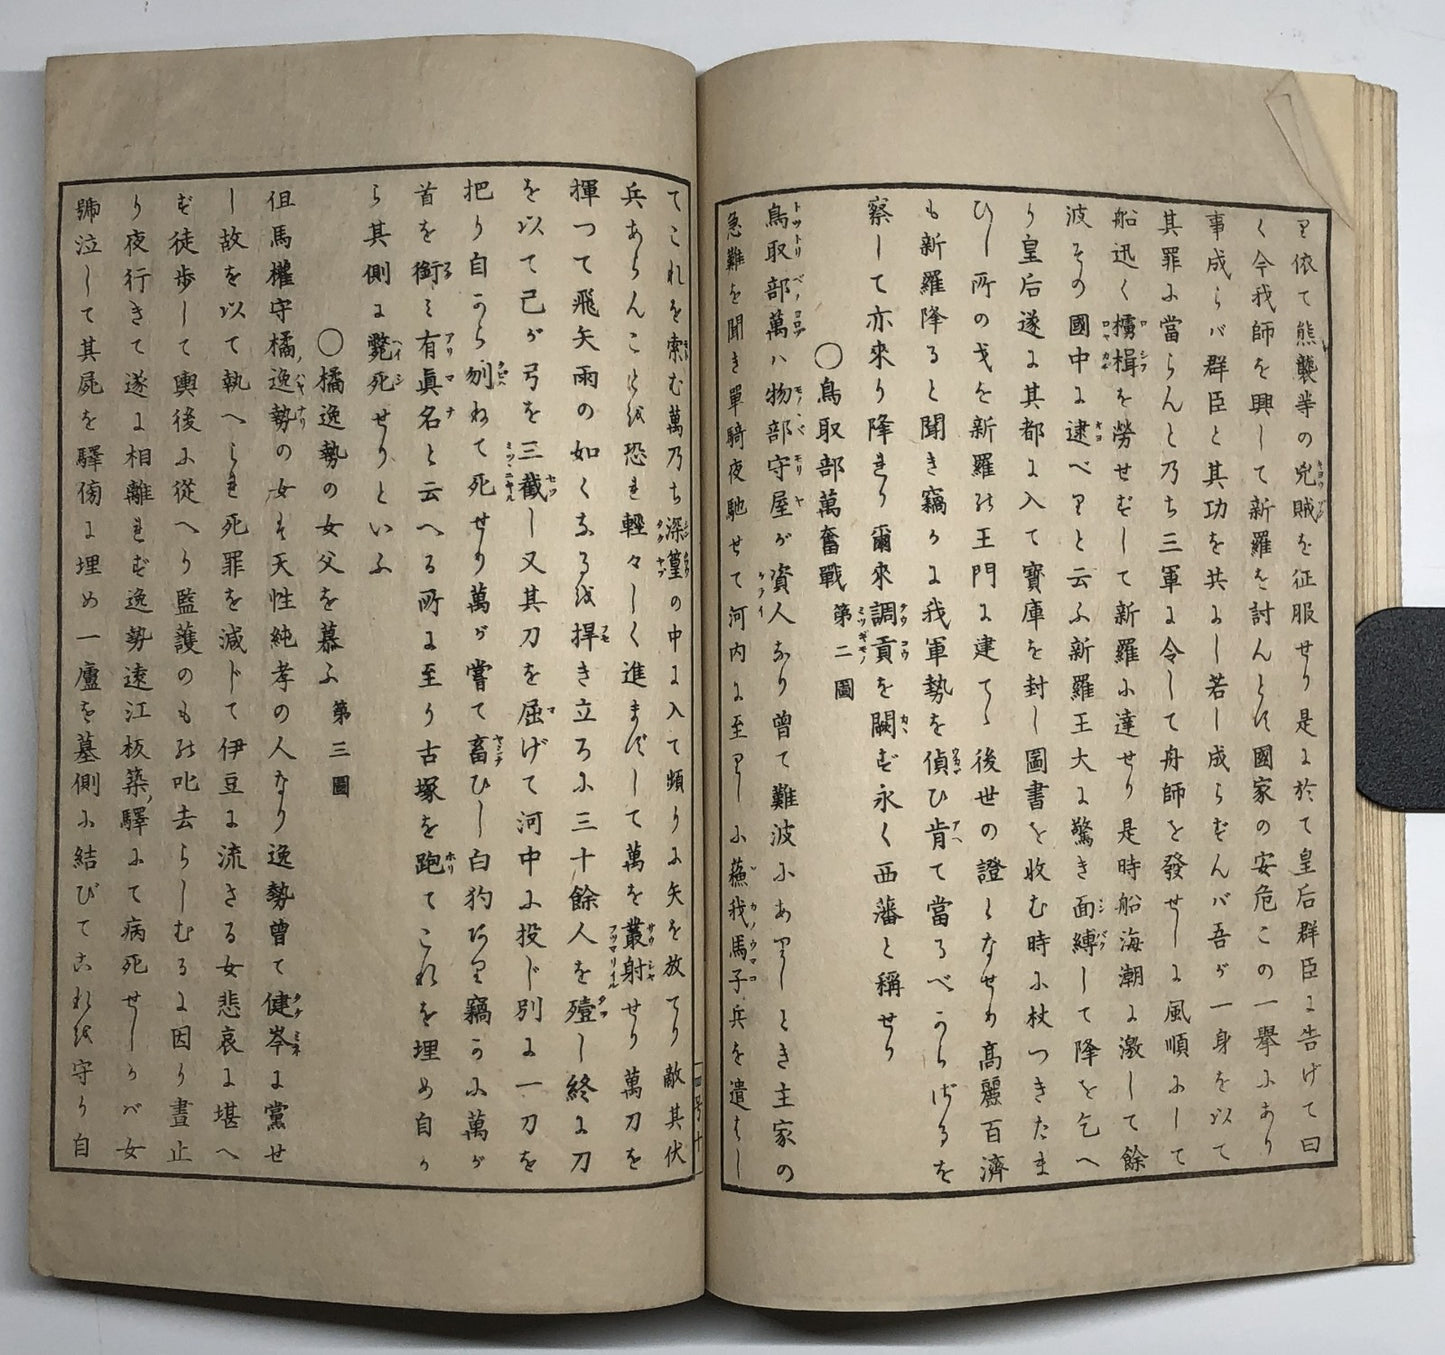 り依て熊襲等の兇賊を征服せり是に於て皇后群臣に告げて曰
く今我師を興して新羅を討んとす國家の安危この一擧にあり
事成らバ群臣と其功を共にし若し成らずんバ吾が一身を以て
其罪に當らんと乃ち三軍に令して舟師を發せしに風順にして
船迅く櫓楫を勞せずして新羅に達せり是時船海潮に激して餘
波その國中に逮べりと云ふ新羅王大に驚き面縛して降を乞へ
り皇后遂に其都に入て寳庫を封し圖書を收む時に杖つきたま
ひし所の戈を新羅の王門に建てゝ後世の證となせり高麗百濟
も新羅降ると聞き竊かに我軍勢を偵ひ肯て當るべからざるを
察して亦來り降れり爾來調貢を闕ず永く西藩と稱せり
〇鳥取部萬奮戰 第二圖
鳥取部萬ハ物部守屋が資人なり曾て難波にありしとき主家の
急難を聞き單騎夜馳せて河内に至りしに蘓我馬子兵を遣はし
てこれを索む萬乃ち深篁の中に入て頻りに矢を放てり敵其伏
兵あらんことを恐れ輕々しく進まずして萬を叢射せり萬刀を
揮つて飛矢雨の如くなるを捍き立ろに三十餘人を殪し終に刀
を以て己が弓を三截し又其刀を屈げて河中に投じ別に一刀を
把り自から刎ねて死せり萬が嘗て畜ひし白犳あり竊かに萬が
首を銜ミ有眞名と云へる所に至り古塚を跑てこれを埋め自か
ら其側に斃死せりといふ
〇橘逸勢の女父を慕ふ 第三圖
但馬權守橘逸勢の女は天性純孝の人なり逸勢曾て健岑に黨せ
し故を以て執へられ死罪を減じて伊豆に流さる女悲哀に堪へ
ず徒歩して輿後に從へり監護のもの叱去らしむるに因り晝止
り夜行きて遂に相離れず逸勢遠江板築驛にて病死せしかバ女
號泣して其屍を驛傍に埋め一廬を墓側に結びてこれを守り自